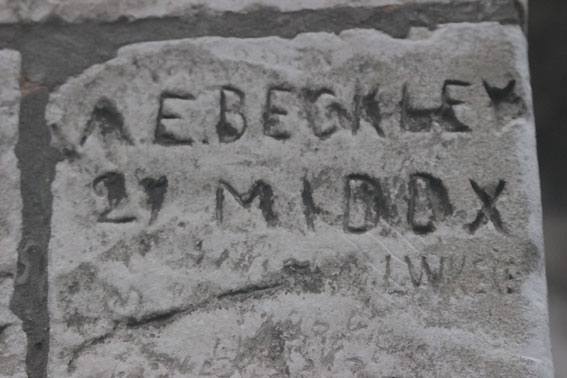 A.E.BECKLEY
27 MIDDX